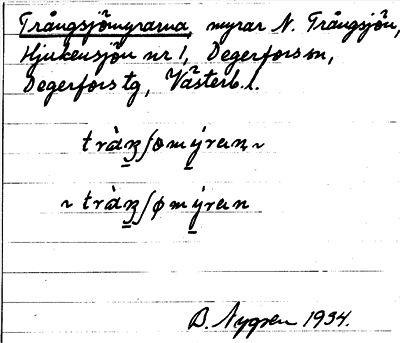 Trångsjömyrarna, myrar N. Trångsjön,
Hjukensjön nr 1, Degerfors sn,
Degerfors tg, Västerb. l.
~
~
B. Nygren 1934.